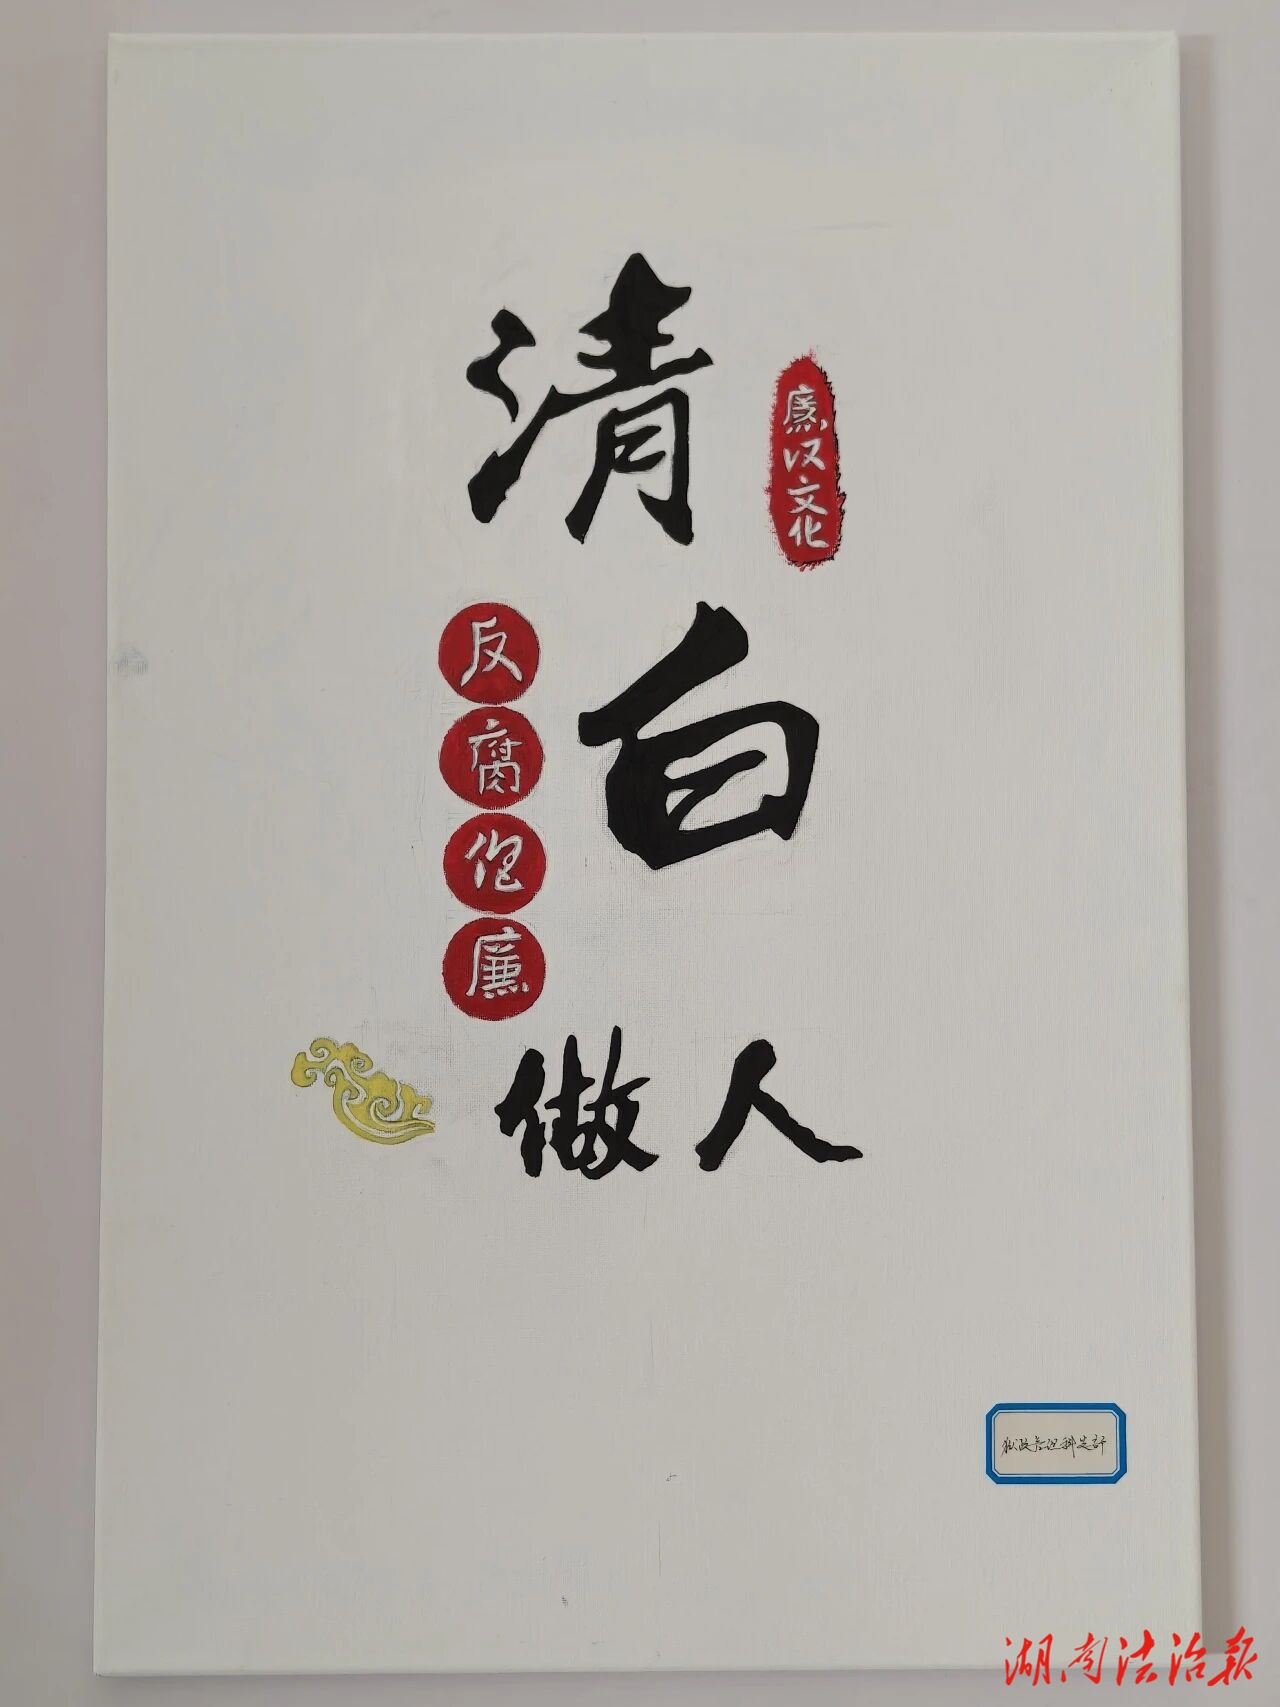 清
白
做人
廉汉文化
反腐倡廉
狱政管理科
湖南法治报